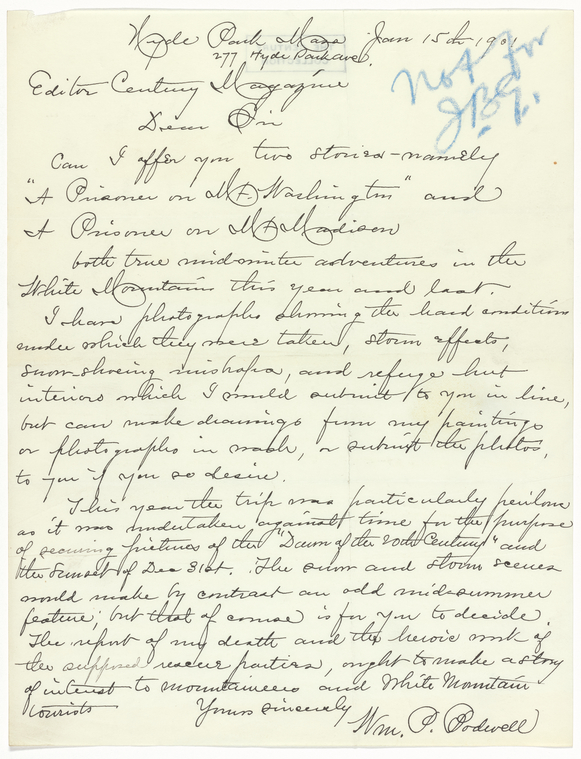 Hyde Park Mass Jan 15th 1901
277 Hyde Park Ave.
Not for
J.B.G.
Editor Century Magazine
Dear Sir
Can I offer you two stories - namely
"A Prisoner on Mt. Washington" and
A Prisoner on Mt Madison
both true midwinter adventures in the
White Mountains this year and last.
I have photographs showing the hard conditions
under which they were taken, storm effects,
snow-shoeing mishaps, and refuge hut
interiors which I would submit to you in line,
but can make drawings from my paintings
or photographs in wash, or submit the photos,
to you if you so desire.
This year the trip was particularly perilous
as it was undertaken against time for the purpose
of securing pictures of the "Dawn of the 20th Century" and
the Sunset of Dec 31st. The snow and storm scenes
would make by contrast an odd midsummer
feature; but that of course is for you to decide.
The report of my death and the heroic work of
the supposed rescue parties, ought to make a story
of interest to mountaineers and White Mountain
tourists
Yours sincerely
Wm. P.